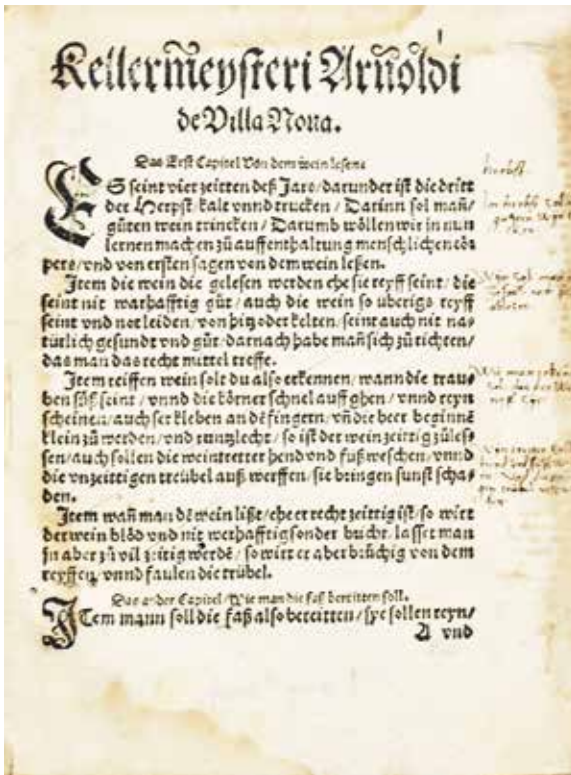 Kellermeysteri Arnoldi
de Villa Noua.
Das Erst Capitel Von dem wein lesen
ES seint vier zeitten deß Jars/darunder ist die dritt
der Herpst/kalt vnnd trucken/Darinn sol man/
gůten wein trincken/Darumb wöllen wir in nun
lernen machen zů auffenthaltung menschlichen cör
pers/vnd von ersten sagen von dem wein leßen.
Jtem die wein die gelesen werden ehe sie reyff seint/die
seint nit warhafftig gůt/auch die wein so überigs reyff
seint vnd not leiden/von hitz oder kelten/seint auch nit na⸗
türlich gesundt vnd gůt/darnach habe man sich zů richten/
das man das recht mittel treffe.
Jtem reiffen wein solt du also erkennen/wann die trau⸗
ben süß seint/vnnd die körner schnel auff ghen/vnnd reyn
scheinen/auch ser kleben an dē fingern/vñ die beer beginnē
klein zů werden/vnd runtzlecht/so ist der wein zeittig zů leß
sen/auch sollen die weintretter hend vnd fuß weschen/vnnd
die vnzeittigen treübel auß werffen/sie bringen sunst scha⸗
den.
Jtem wañ man dē wein lißt/ehe er recht zeittig ist/so wirt
der wein blöd vnd nit werhafftig sonder bucht/lasset man
jn aber zů vil zeitig werdē/so wirt er aber brüchig von dem
reyffen/vnnd faulen die trübel.
Das ander Capitel/Wie man die faß bereitten soll.
JTem mann soll die faß also bereitten/sye sollen reyn/
A vnd